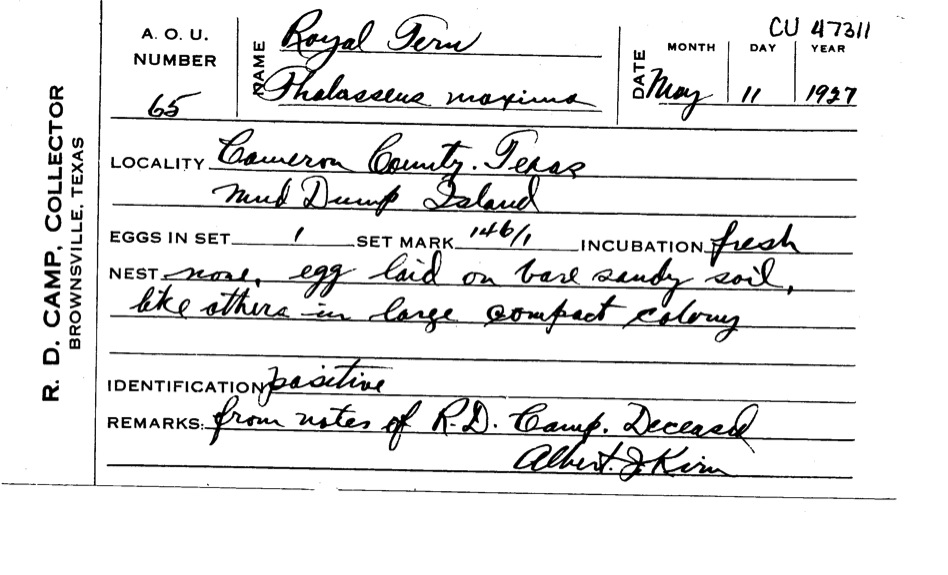 CU 47311
A. O. U. NUMBER 65
NAME Royal Tern
Thalasseus maxima
DATE MONTH DAY YEAR
May 11 1927
R. D. CAMP, COLLECTOR
BROWNSVILLE, TEXAS
LOCALITY Cameron County. Texas
Mud Dump Island
EGGS IN SET 1 SET MARK 146/1 INCUBATION fresh
NEST none, egg laid on bare sandy soil,
like others in large compact colony
IDENTIFICATION positive
REMARKS: from notes of R.D. Camp. Deceased
Albert J. Kirn